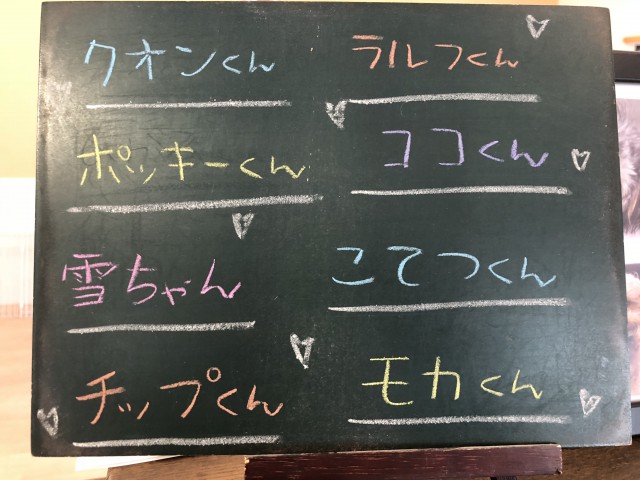 クオンくん
ラルフくん
ポッキーくん
ココくん
雪ちゃん
こてつくん
チップくん
モカくん